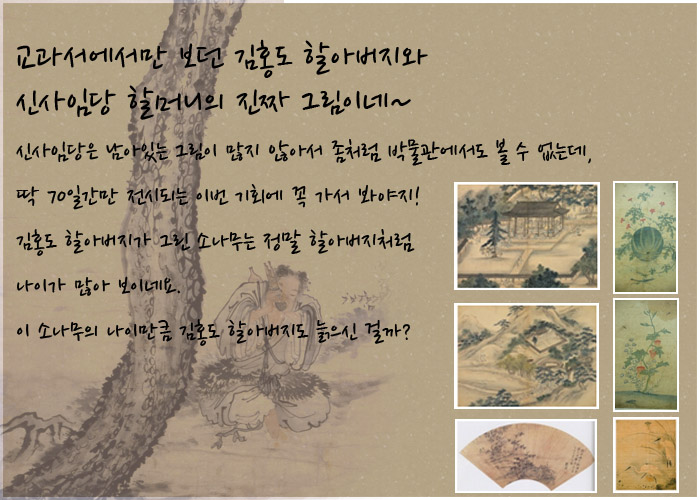 교과서에서만 보던 김홍도 할아버지와
신사임당 할머니의 진짜 그림이네~
신사임당은 남아있는 그림이 많지 않아서 좀처럼 박물관에서도 볼 수 없는데,
딱 70일간만 전시되는 이번 기회에 꼭 가서 봐야지!
김홍도 할아버지가 그린 소나무는 정말 할아버지처럼
나이가 많아 보이네요.
이 소나무의 나이만큼 김홍도 할아버지도 늙으신 걸까?